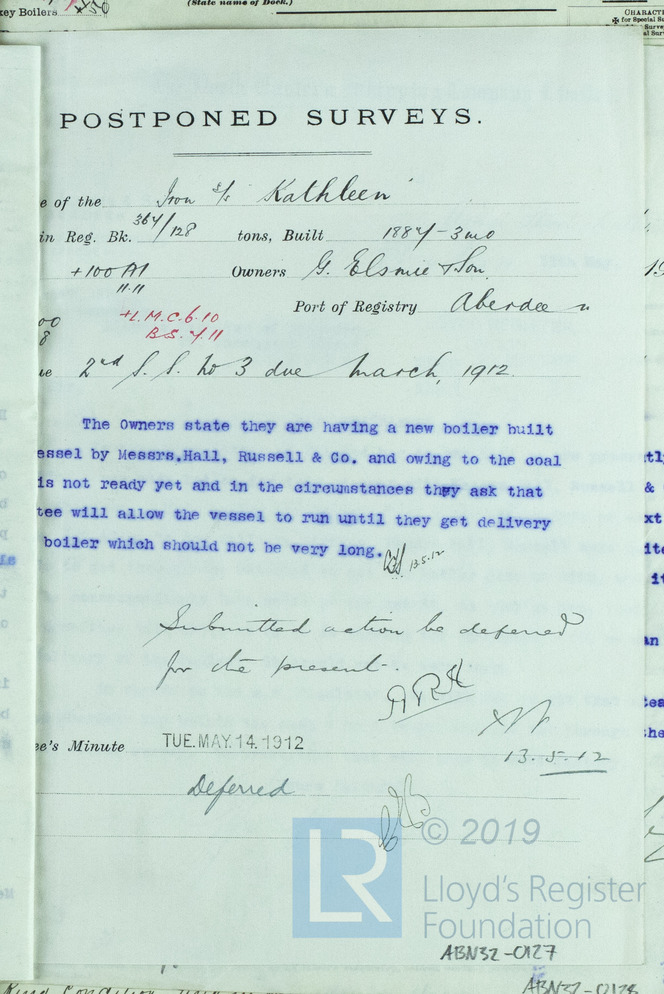 key Boilers
(State name of Dock.)
CHARACTE
for Special Su
POSTPONED SURVEYS.
e of the Iron s/s Kathleen
in Reg. Bk. 364/128 tons, Built 1884-3mo
+100 A1 Owners G. Elsmie & Son.
11.11
Port of Registry Aberdeen
00 +L.M.C. 6.10
8 B.S. 4.11
ue 2nd S. S. No 3 due March, 1912.
The Owners state they are having a new boiler built
essel by Messrs.Hall, Russell & Co. and owing to the coal
is not ready yet and in the circumstances they ask that
tee will allow the vessel to run until they get delivery
boiler which should not be very long.
13.5.12
Submitted action be deferred
for the present.
ee's Minute TUE. MAY. 14. 1912
13.5.12
Deferred
LR © 2019
Lloyd's Register
Foundation
ABN32-0127
ABN32-0128